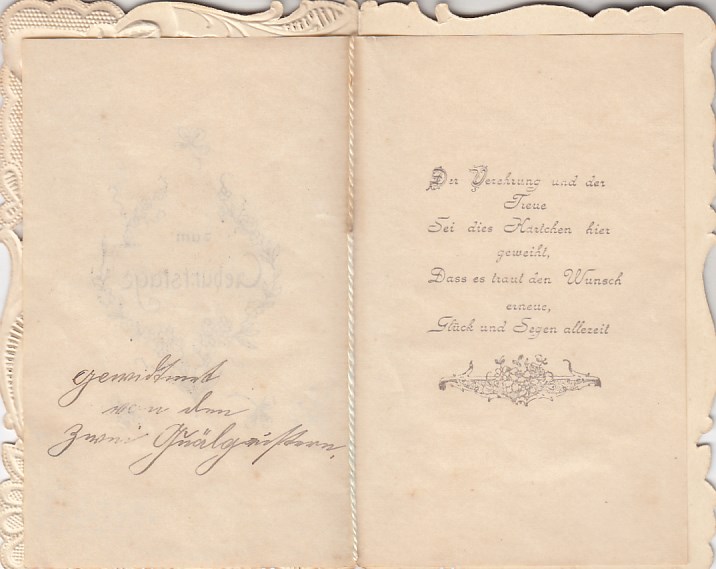 zum
Geburtstage
gewidmet
von den
zwei Quälgeistern.
Der Verehrung und der
Treue
Sei dies Kärtchen hier
geweiht,
Dass es traut den Wunsch
erneue,
Glück und Segen allezeit